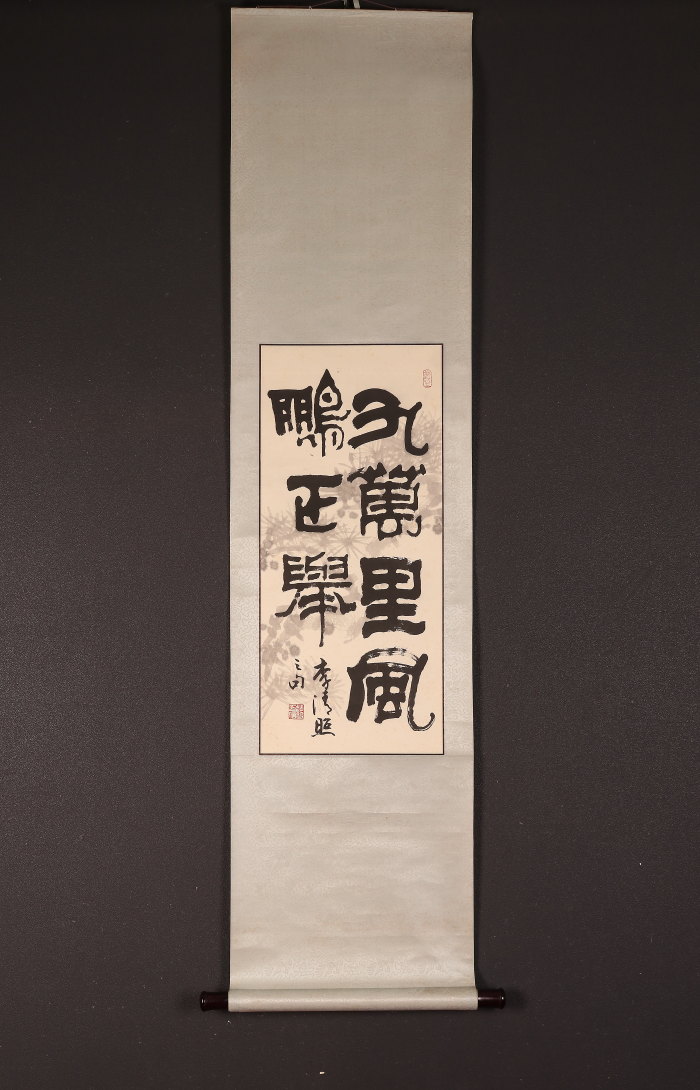 九萬里風
鵬正舉
李清照
之句